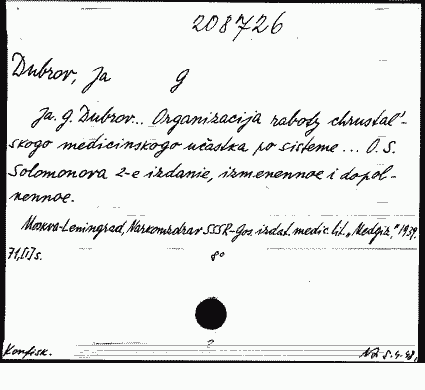 208726
Dubrov, Ja G
Ja. G. Dubrov... Organizacija raboty chrustal'-
skogo medicinskogo učastka po sisteme ... O. S.
Solomonova 2-e izdanie, izmenennoe i dopol-
nennoe.
Moskva-Leningrad, Narkomzdrav SSSR-Gos. izdat. medic. lit. "Medgiz," 1939.
71,[1] s. 8°
?
Konfisk. 5.4.48.